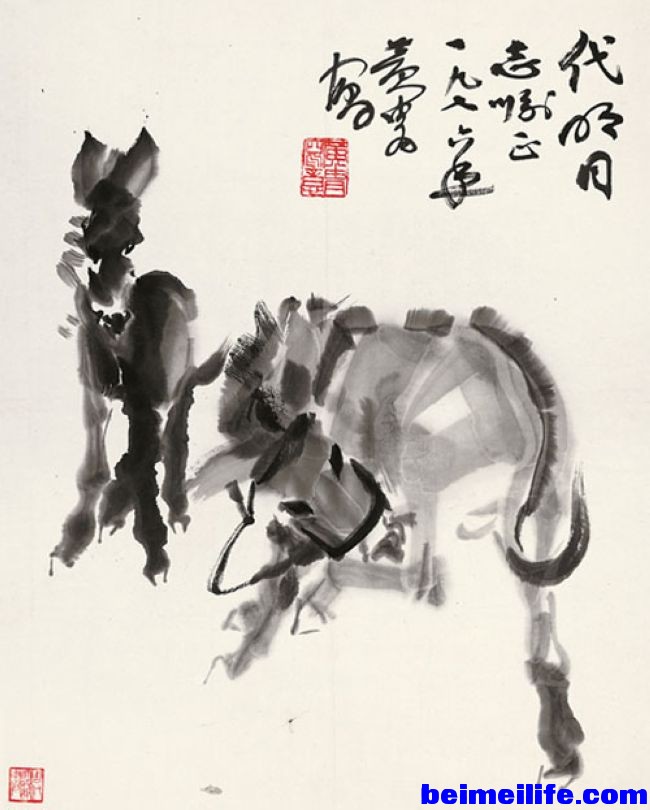 代明同
志嘱正
一九七六年
黄胄
写
beimeilife.com